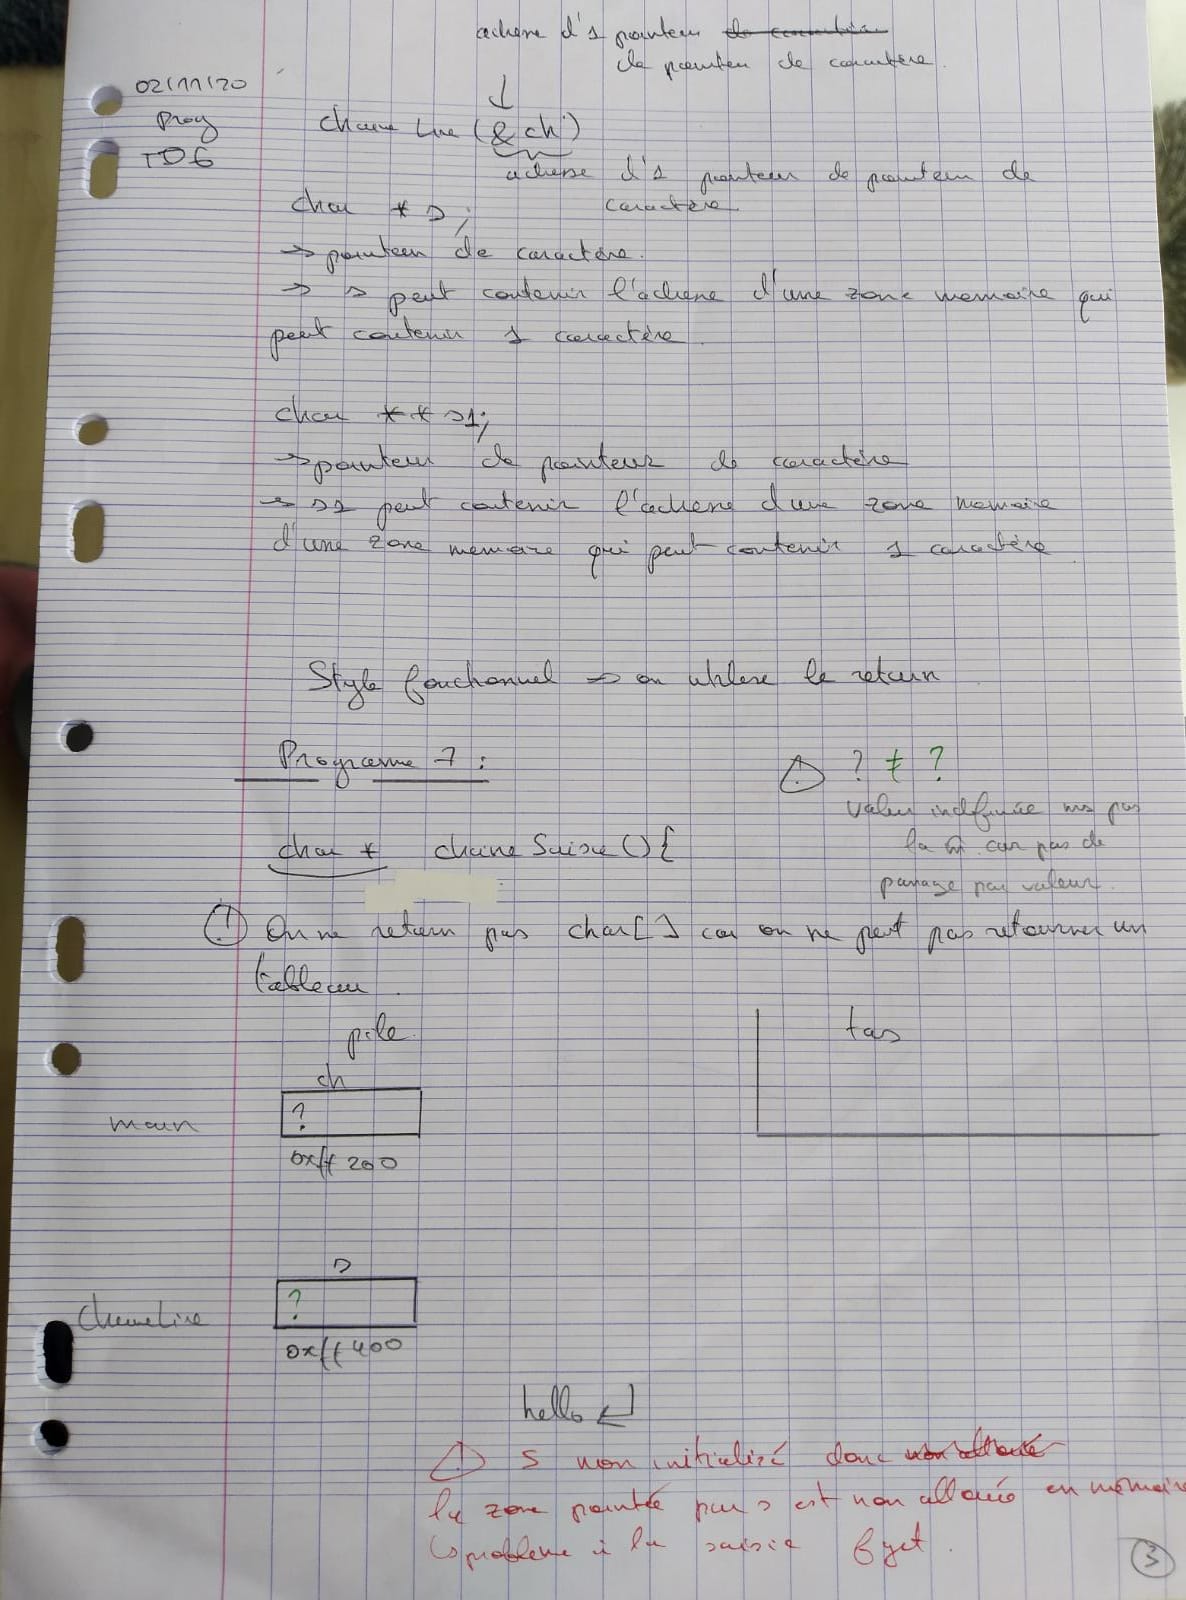 adresse d'1 pointeur de caractère
de pointeur de caractère.
02/11/20
Prog
TD6
chaine Lire (&ch)
adresse d'1 pointeur de pointeur de
caractère
char * s;
→ pointeur de caractère.
→ s peut contenir l'adresse d'une zone memoire qui
peut contenir 1 caractère.
char ** s1;
→ pointeur de pointeur de caractère
→ s1 peut contenir l'adresse d'une zone memoire
d'une zone memoire qui peut contenir 1 caractère
Style fonctionnel → on utilise le return
Programme 7 :
! ? ≠ ?
valeur indéfinie ms pas
la car pas de
passage par valeur.
char * chaine Saisie () {
! On ne return pas char[] car on ne peut pas retourner un
tableau.
pile
tas
ch
main
?
0xff 200
s
ChaineLire
?
0xff 400
hello ↵
! s non initialisé donc non allouée
la zone pointée par s est non allouée en mémoire
↳ problème à la saisie fget.
3